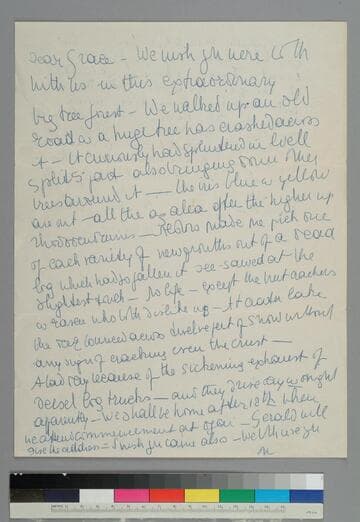 Dear Grace – We wish you were both
with us in this extraordinary
big tree forest – We walked up an old
road as a huge tree has crashed across
it – It curiously had splintered in well
splits just also bringing down other
trees around it — the iris blue & yellow
are out – all the azalea after the higher up
rhododendrons – made me pick one
of each variety of new growths out of a dead
log which had so fallen it see-sawed at the
slightest touch – No life – except the nut crackers
At Crater Lake
the dog bounced across twelve feet of snow without
any sign of cracking even the crust —
A bad day because of the sickening exhaust of
Deisel log trucks — and they drive day & night
apparently – We shall be home after 12th when
he after Commencement out of – Gerald will
give the address – I wish you came also – we'll